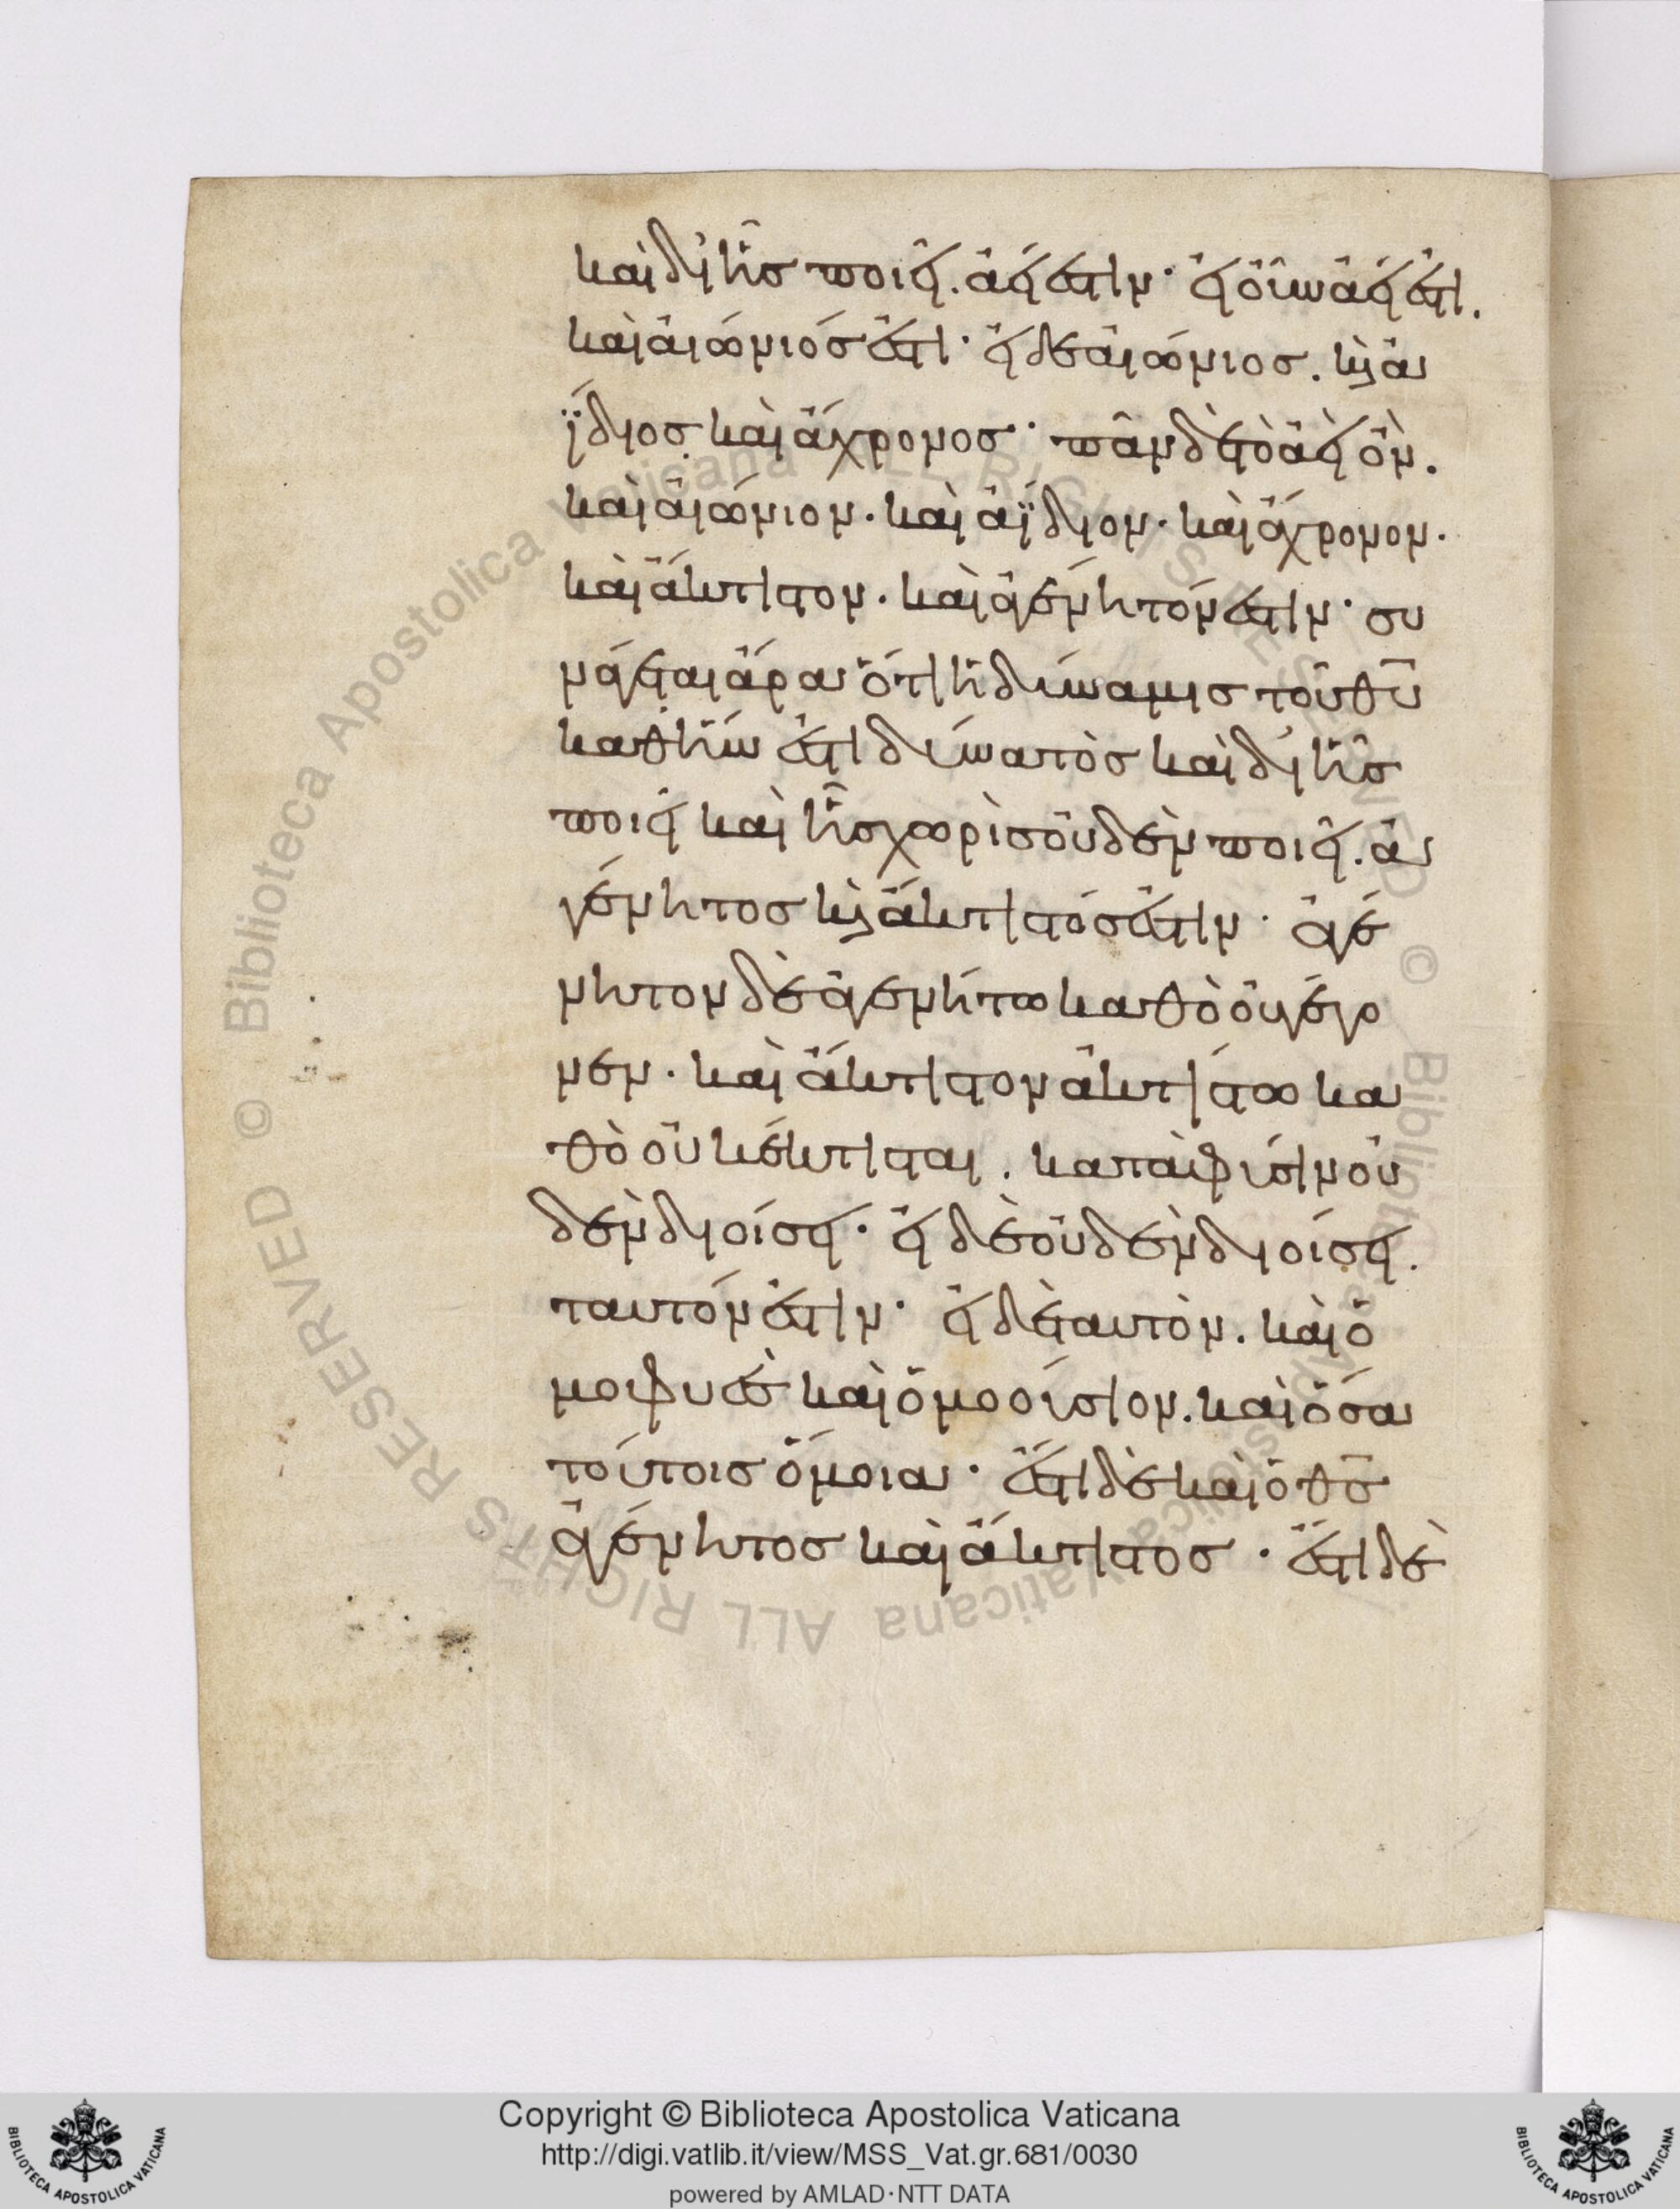 καὶ δι' ἧς ποιεῖ. ἀεί ἐστιν· εἰ οὖν ἀεί ἐστι.
καὶ αἰώνιός ἐστι· εἰ δὲ αἰώνιος. κ(αὶ) ἀ
ΐδιος καὶ ἄχρονος· πᾶν δὲ τὸ ἀεὶ ὄν.
καὶ αἰώνιον. καὶ ἀΐδιον. καὶ ἄχρονον.
καὶ ἄκτιστον. καὶ ἀγένητόν ἐστιν· συ
νάγεται ἄρα ὅτι ἡ δύναμις τοῦ θυ
καθ' ἣν ἐστι δυνατὸς καὶ δι' ἧς
ποιεῖ καὶ ἧς χωρὶς οὐδὲν ποιεῖ. ἀ
γένητος κ(αὶ) ἄκτιστός ἐστιν· ἀγέ
νητον δὲ ἀγενήτω καθὸ οὐ γέγο
νεν. καὶ ἄκτιστον ἀκτίστω κα
θὸ οὐκ ἔκτισται. κατὰ φύσιν οὐ
δὲν διοίσει· εἰ δὲ οὐδὲν διοίσει.
ταυτόν ἐστιν· εἰ δὲ ταυτὸν. καὶ ὁ
μοφυὲς καὶ ὁμοούσιον. καὶ ὅσα
τούτοις ὅμοια· ἔστι δὲ καὶ ὁ θς
ἀγένητος καὶ ἄκτιστος· ἔστι δὲ
Copyright © Biblioteca Apostolica Vaticana
http://digi.vatlib.it/view/MSS_Vat.gr.681/0030
powered by AMLAD·NTT DATA
BIBLIOTECA APOSTOLICA VATICANA
BIBLIOTECA APOSTOLICA VATICANA
© Biblioteca Apostolica Vaticana ALL RIGHTS RESERVED © Biblioteca Apostolica Vaticana ALL RIGHTS RESERVED